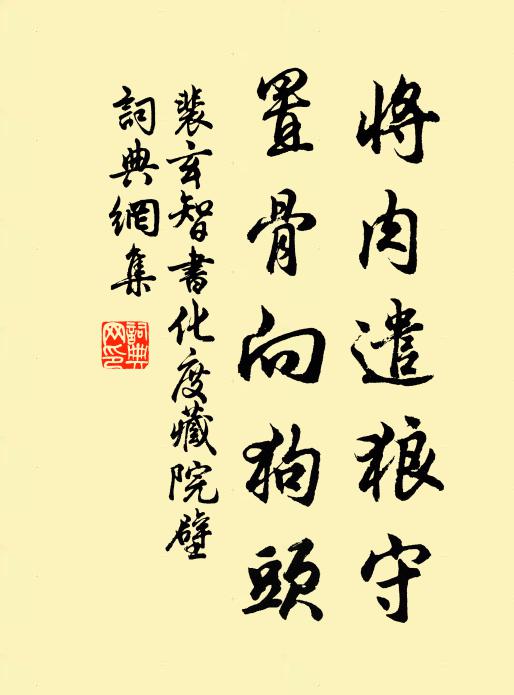 將肉遣狼守
置骨向狗頭
裴玄智書化度藏院壁
詞典網集
詞典網印